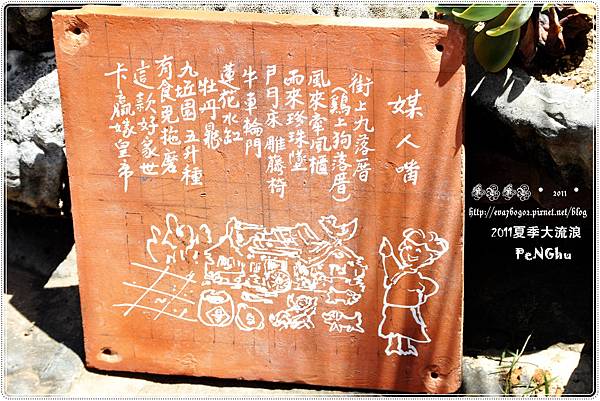 媒人嘴
街上九落厝
(鷄上狗落厝)
風來牽風櫃
雨來珍珠墜
門床雕藤椅
牛車輪門
蓮花水缸
牡丹
九坵園五升種
有食免拖磨
這款好家世
卡贏嫁皇帝
2011
http://eva76090z.pixnet.net/blog
2011夏季大流浪
PeNGhu